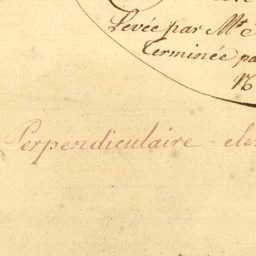 Levée par Mr
Terminée pa
N
Perpendiculaire - ele